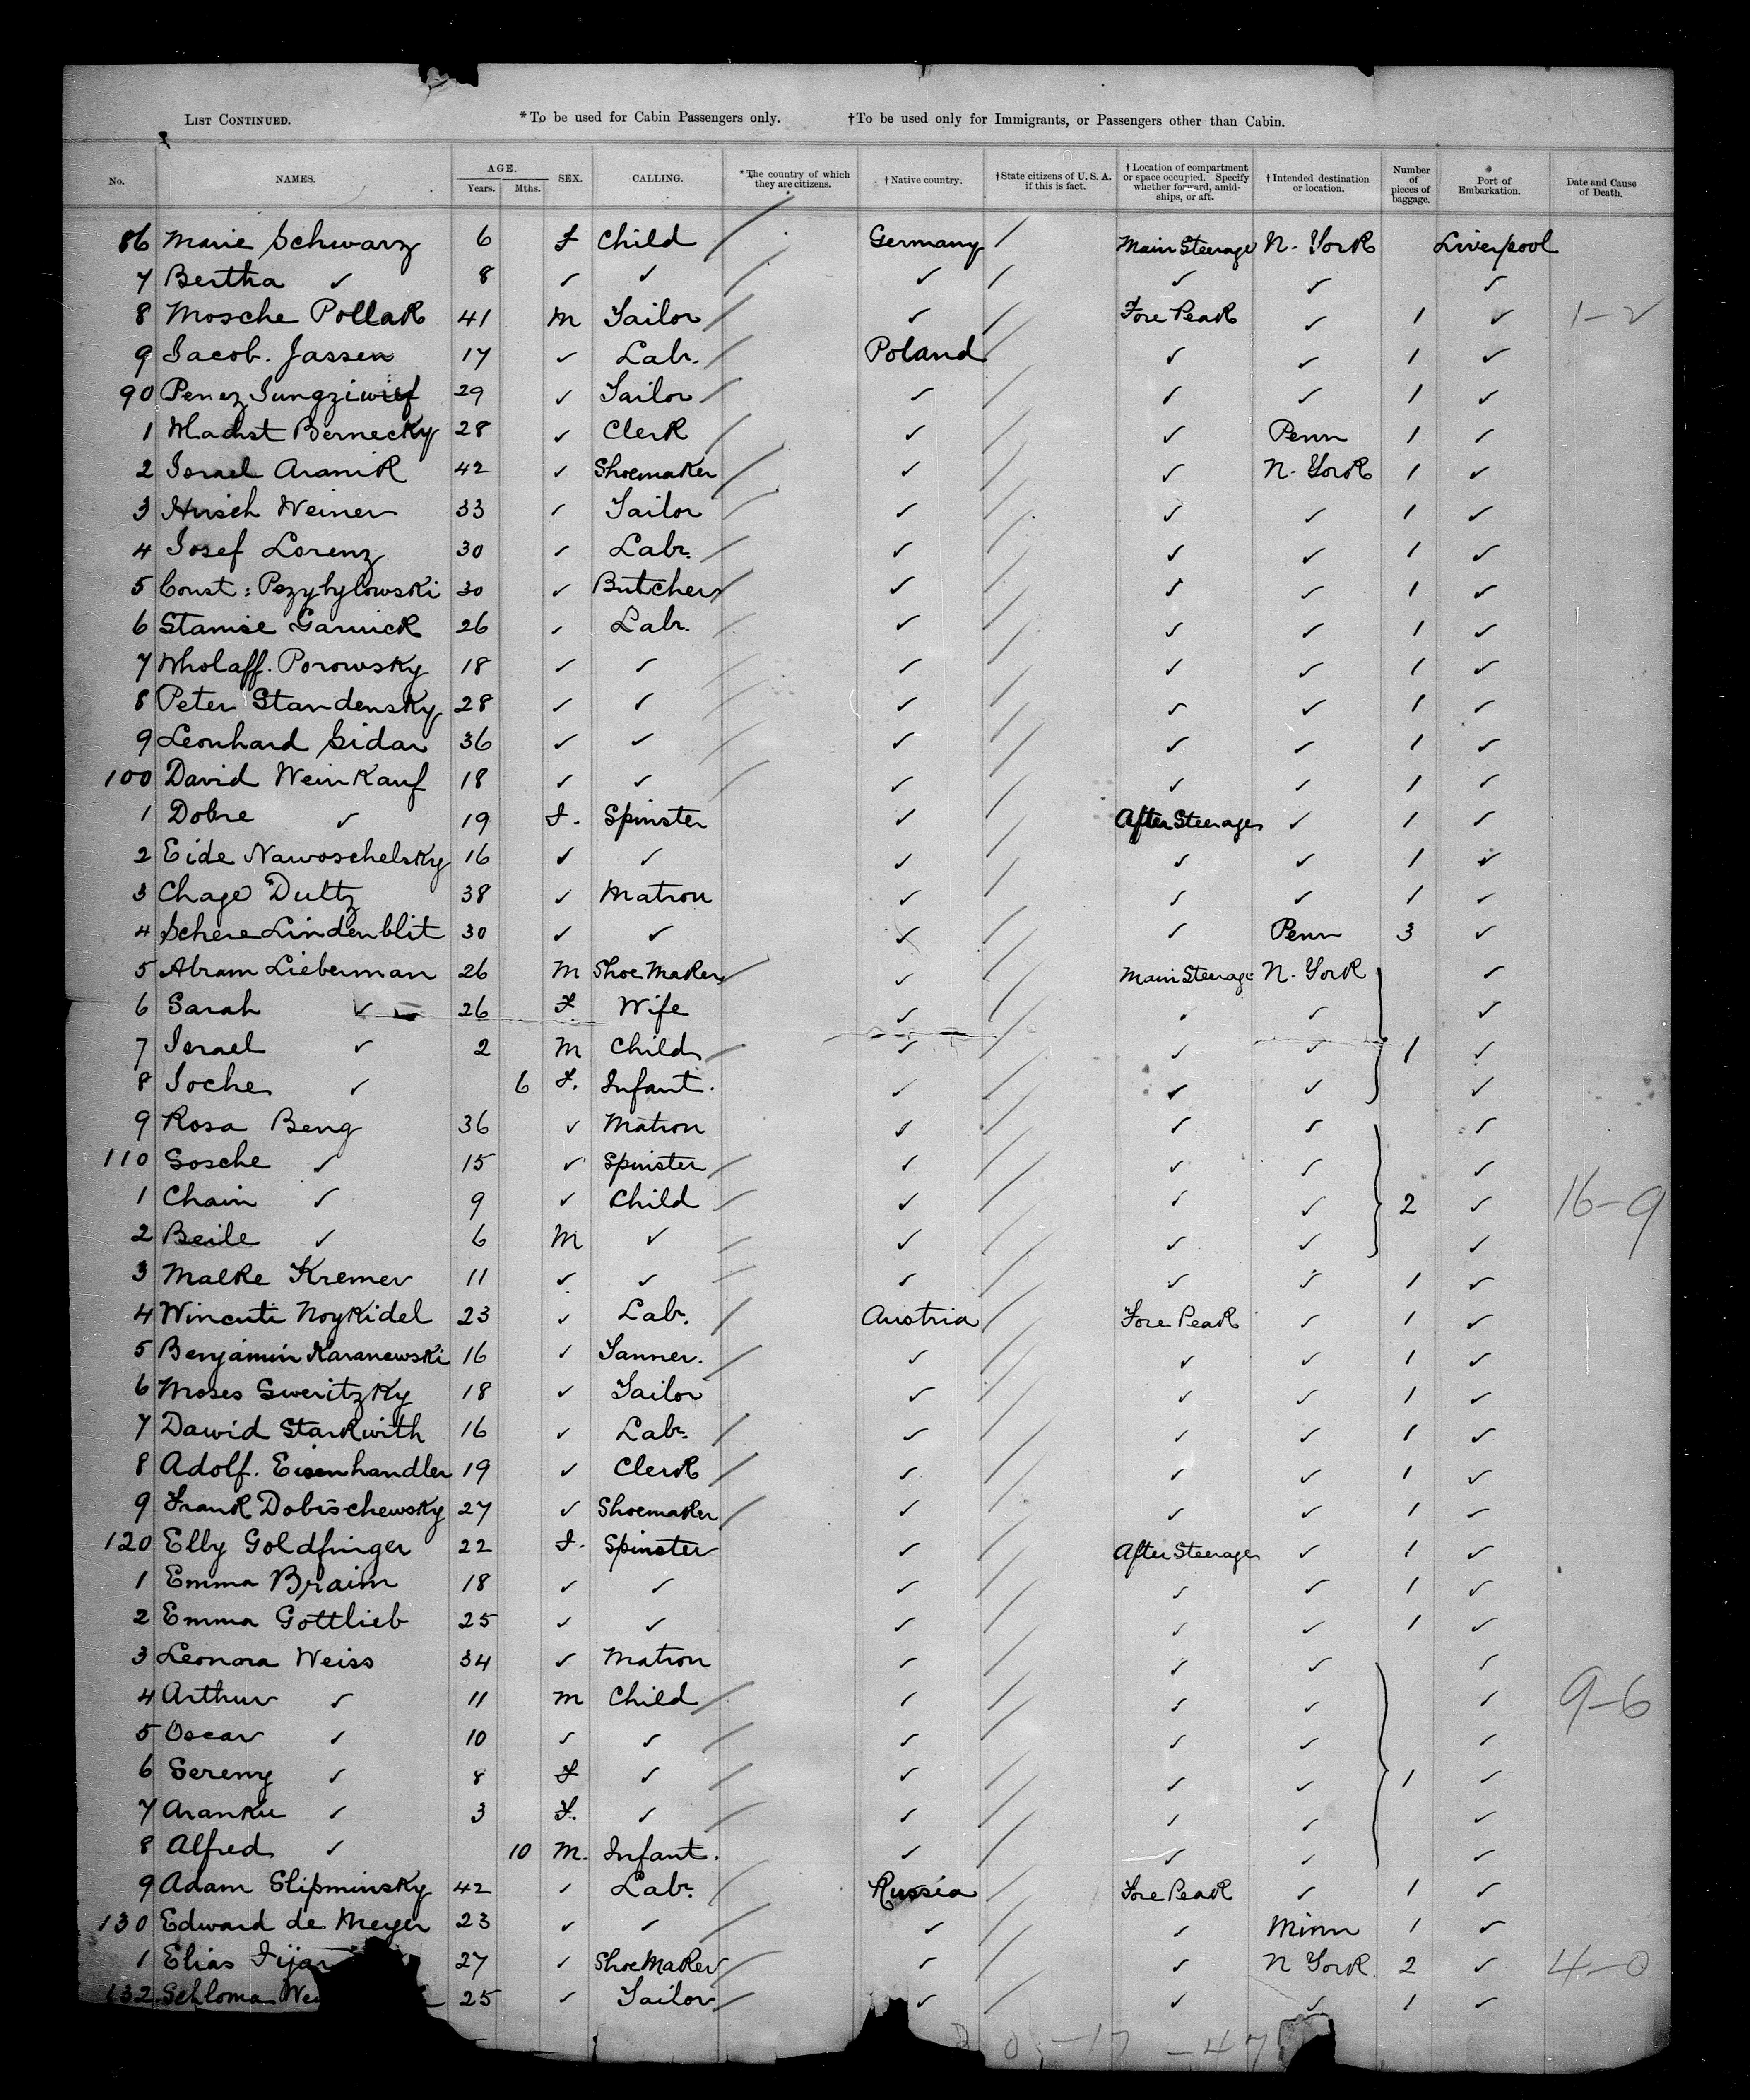 List Continued. *To be used for Cabin Passengers only. †To be used only for Immigrants, or Passengers other than Cabin.
No. NAMES. AGE. Years. Mths. SEX. CALLING. *The country of which they are citizens. †Native country. †State citizens of U. S. A. if this is fact. †Location of compartment or space occupied. Specify whether forward, amidships, or aft. †Intended destination or location. Number of pieces of baggage. Port of Embarkation. Date and Cause of Death.
86 Marie Schwarz 6 F Child / Germany / Main Steerage N. York Liverpool
7 Bertha ✓ 8 ✓ ✓ / ✓ / ✓ ✓ ✓
8 Mosche Pollak 41 M Tailor / ✓ / Fore Peak ✓ 1 ✓ 1-2
9 Jacob. Jassen 17 ✓ Labr. / Poland / ✓ ✓ 1 ✓
90 Penez 29 ✓ Tailor / ✓ / ✓ ✓ 1 ✓
1 Bernecky 28 ✓ Clerk / ✓ / ✓ Penn 1 ✓
2 Israel Aranik 42 ✓ Shoemaker / ✓ / ✓ N. York 1 ✓
3 Hirsch Weiner 33 ✓ Tailor / ✓ / ✓ ✓ 1 ✓
4 Josef Lorenz 30 ✓ Labr. / ✓ / ✓ ✓ 1 ✓
5 Const: Pezybylowski 30 ✓ Butcher / ✓ / ✓ ✓ 1 ✓
6 Stanise Garnick 26 ✓ Labr. / ✓ / ✓ ✓ 1 ✓
7 Wholaff. Porowsky 18 ✓ ✓ / ✓ / ✓ ✓ 1 ✓
8 Peter Standensky 28 ✓ ✓ / ✓ / ✓ ✓ 1 ✓
9 Leonhard Sidar 36 ✓ ✓ / ✓ / ✓ ✓ 1 ✓
100 David Weinkauf 18 ✓ ✓ / ✓ / ✓ ✓ 1 ✓
1 Dobre ✓ 19 F. Spinster ✓ / After Steerage ✓ 1 ✓
2 Eide Nawoschelsky 16 ✓ ✓ ✓ / ✓ ✓ 1 ✓
3 Chage Dultz 38 ✓ Matron ✓ / ✓ ✓ 1 ✓
4 Schere Lindenblit 30 ✓ ✓ ✓ / ✓ Penn 3 ✓
5 Abram Lieberman 26 M Shoe Maker / ✓ / Main Steerage N. York ✓
6 Sarah ✓ 26 F. Wife ✓ / ✓ ✓ ✓
7 Israel ✓ 2 M Child / ✓ / ✓ ✓ 1 ✓
8 Joche ✓ 6 F. Infant. ✓ / ✓ ✓ ✓
9 Rosa Beng 36 ✓ Matron ✓ / ✓ ✓ ✓
110 Sosche ✓ 15 ✓ Spinster / ✓ / ✓ ✓ ✓
1 Chain ✓ 9 ✓ Child / ✓ / ✓ ✓ 2 ✓ 16-9
2 Beile ✓ 6 M ✓ / ✓ / ✓ ✓ ✓
3 Malke Kremer 11 ✓ ✓ / ✓ / ✓ ✓ 1 ✓
4 Wincuti Noykidel 23 ✓ Labr. / Austria / Fore Peak ✓ 1 ✓
5 Benjamin Karanewski 16 ✓ Tanner. / ✓ / ✓ ✓ 1 ✓
6 Moses Sweritzky 18 ✓ Tailor ✓ / ✓ ✓ 1 ✓
7 Dawid Starkwith 16 ✓ Labr. / ✓ / ✓ ✓ 1 ✓
8 Adolf. Eisenhandler 19 ✓ Clerk / ✓ / ✓ ✓ 1 ✓
9 Frank Dobischewsky 27 ✓ Shoemaker / ✓ / ✓ ✓ 1 ✓
120 Elly Goldfinger 22 F. Spinster ✓ / After Steerage ✓ 1 ✓
1 Emma Braim 18 ✓ ✓ ✓ / ✓ ✓ 1 ✓
2 Emma Gottlieb 25 ✓ ✓ ✓ / ✓ ✓ 1 ✓
3 Leonora Weiss 34 ✓ Matron ✓ / ✓ ✓ ✓
4 Arthur ✓ 11 M Child / ✓ / ✓ ✓ ✓ 9-6
5 Oscar ✓ 10 ✓ ✓ / ✓ / ✓ ✓ ✓
6 Sereny ✓ 8 F ✓ / ✓ / ✓ ✓ 1 ✓
7 Aranku ✓ 3 F. ✓ / ✓ / ✓ ✓ ✓
8 Alfred ✓ 10 M. Infant. ✓ / ✓ ✓ ✓
9 Adam Slipminsky 42 ✓ Labr. / Russia / Fore Peak ✓ 1 ✓
130 Edward de Meyer 23 ✓ ✓ / ✓ / ✓ Minn 1 ✓
1 Elias 27 ✓ Shoe Maker / ✓ / ✓ N York 2 ✓ 4-0
132 Schloma 25 ✓ Tailor / ✓ / ✓ ✓ 1 ✓
0 -17 -47